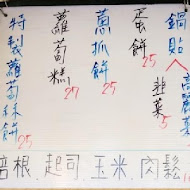 鍋貼
高麗菜
韭菜 5
蛋餅 25
蔥抓餅 25
蘿蔔糕 27
特製蘿蔔絲餅 25
培根、起司、玉米、肉鬆